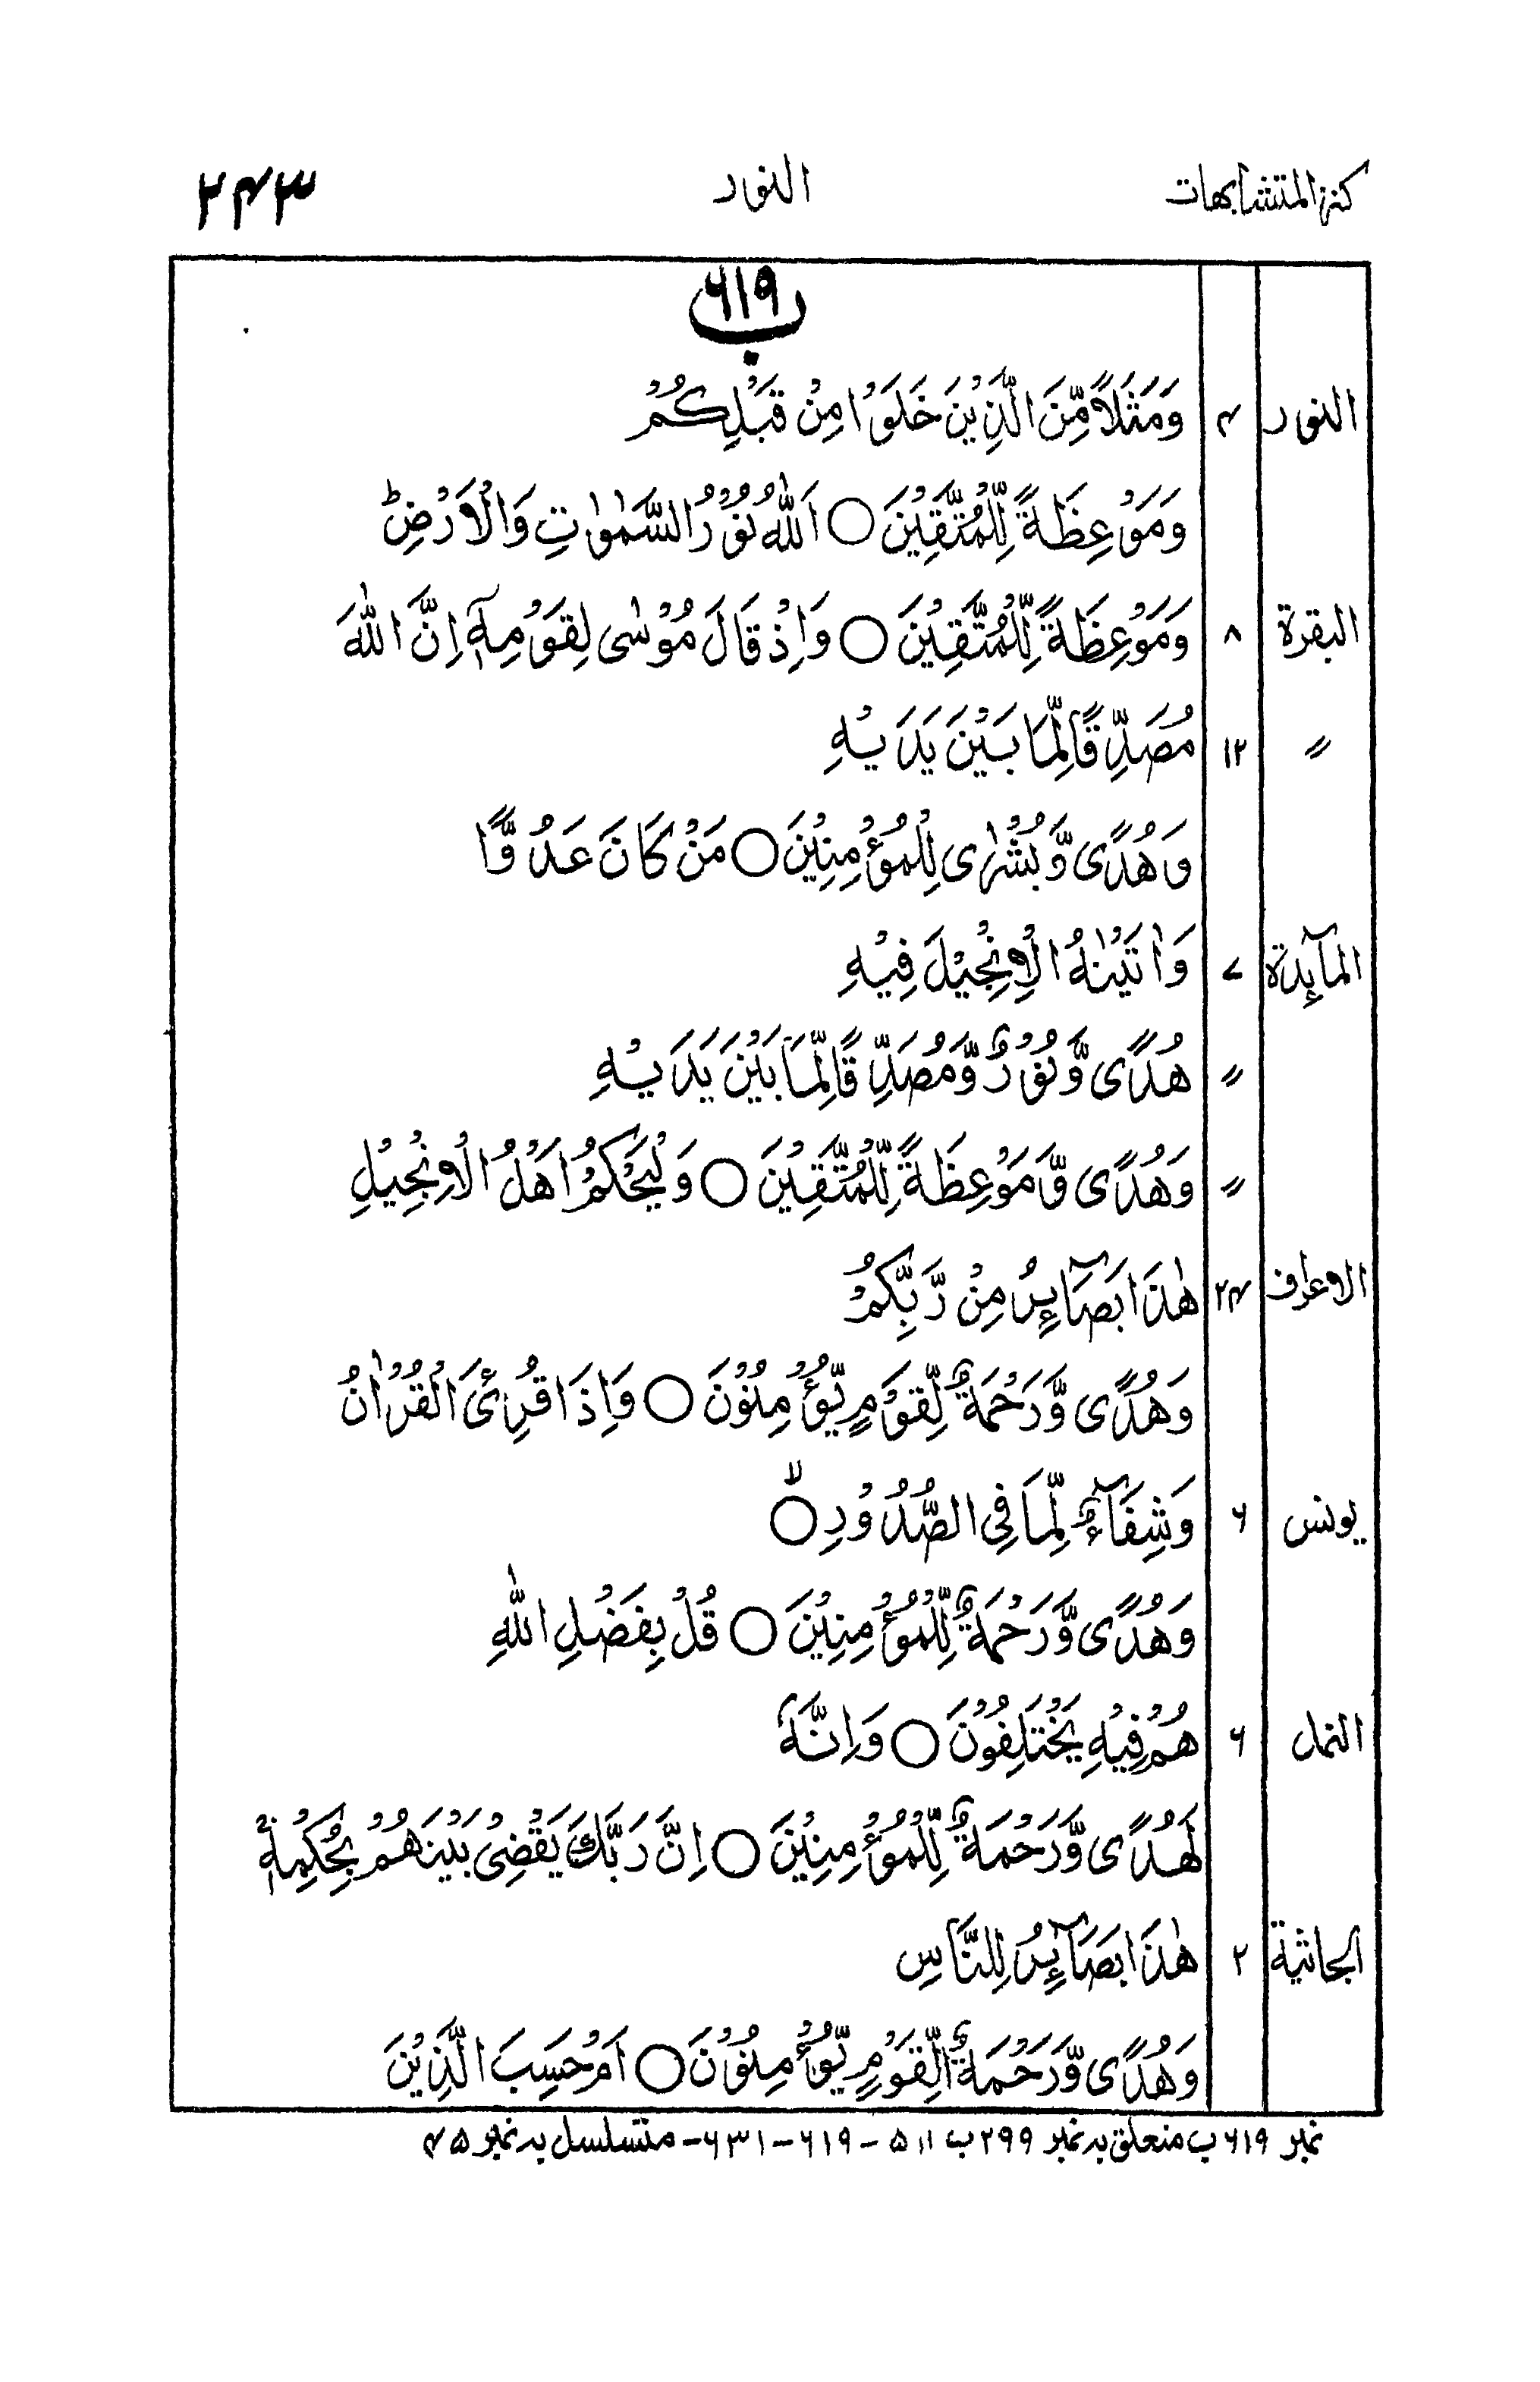 كنز المتشابهات النور ۲۴۳
۶۱۹ ب
النور ۴ وَمَثَلًا مِّنَ الَّذِيْنَ خَلَوْا مِنْ قَبْلِكُمْ
وَمَوْعِظَةً لِّلْمُتَّقِيْنَ ○ اَللّٰهُ نُوْرُ السَّمٰوٰتِ وَالْاَرْضِ ؕ
البقرة ۸ وَمَوْعِظَةً لِّلْمُتَّقِيْنَ ○ وَاِذْ قَالَ مُوْسٰى لِقَوْمِهٖٓ اِنَّ اللّٰهَ
〃 ۱۲ مُصَدِّقًا لِّمَا بَيْنَ يَدَيْهِ
وَهُدًى وَّبُشْرٰى لِلْمُؤْمِنِيْنَ ○ مَنْ كَانَ عَدُوًّا
المآئدة ۷ وَاٰتَيْنٰهُ الْاِنْجِيْلَ فِيْهِ
〃 هُدًى وَّنُوْرٌ وَّمُصَدِّقًا لِّمَا بَيْنَ يَدَيْهِ
〃 وَهُدًى وَّمَوْعِظَةً لِّلْمُتَّقِيْنَ ○ وَلْيَحْكُمْ اَهْلُ الْاِنْجِيْلِ
الاعراف ۲۴ هٰذَا بَصَآئِرُ مِنْ رَّبِّكُمْ
وَهُدًى وَّرَحْمَةٌ لِّقَوْمٍ يُّؤْمِنُوْنَ ○ وَاِذَا قُرِئَ الْقُرْاٰنُ
يونس ۶ وَشِفَآءٌ لِّمَا فِى الصُّدُوْرِ ○ لا
وَهُدًى وَّرَحْمَةٌ لِّلْمُؤْمِنِيْنَ ○ قُلْ بِفَضْلِ اللّٰهِ
النمل ۶ هُمْ فِيْهِ يَخْتَلِفُوْنَ ○ وَاِنَّهٗ
لَهُدًى وَّرَحْمَةٌ لِّلْمُؤْمِنِيْنَ ○ اِنَّ رَبَّكَ يَقْضِىْ بَيْنَهُمْ بِحُكْمِهٖ ۚ
الجاثية ۲ هٰذَا بَصَآئِرُ لِلنَّاسِ
وَهُدًى وَّرَحْمَةٌ لِّقَوْمٍ يُّؤْمِنُوْنَ ○ اَمْ حَسِبَ الَّذِيْنَ
نمبر ۶۱۹ ب متعلق بہ نمبر ۲۹۹ ب ۵۱۱ - ۶۱۹ - ۶۳۱ - متسلسل بہ نمبر ۴۵